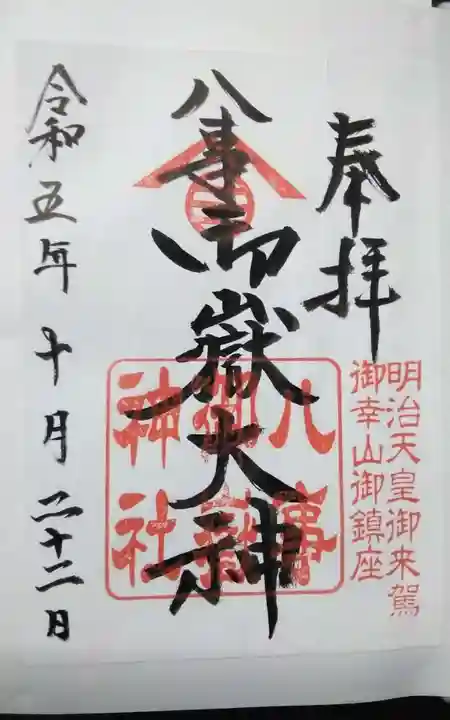 奉拝
明治天皇御来駕
御幸山御鎮座
八事御嶽大神
八事
御嶽
神社
令和五年十月二十二日